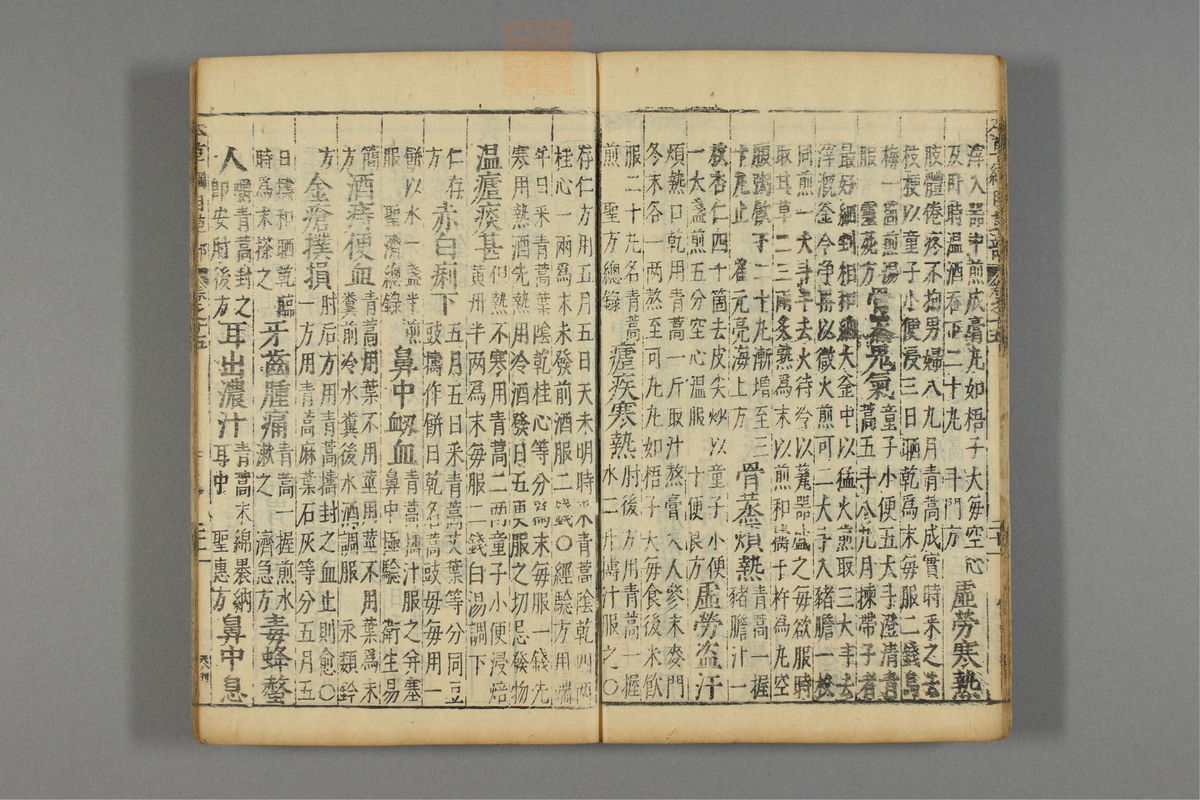 淳入器中煎成膏丸如梧子大每空心
及卧時溫酒吞下二十丸 斗門方
虛勞寒熱
肢體倦疼不拘男婦八九月青蒿成實時采之去
枝梗以童子小便浸三日晒乾爲末每服二錢烏
梅一箇煎湯
服 靈苑方
骨蒸鬼氣
童子小便五大斗澄清青
蒿五斗八九月揀帶子者
最好細剉相和納大釜中以猛火煎取三大斗去
滓溉釜令淨再以微火煎可二大斗入豬膽一枚
同煎一大斗半去火待冷以甆器盛之每欲服時
取甘草二三兩炙熟爲末以煎和擣千杵爲丸空
腹粥飲下二十丸漸增至三
十丸止 崔元亮海上方
骨蒸煩熱
青蒿一握
豬膽汁一
枚杏仁四十箇去皮尖炒以童子小便
一大盞煎五分空心溫服 十便良方
虛勞盜汗
煩熱口乾用青蒿一斤取汁熬膏入人參末麥門
冬末各一兩熬至可丸丸如梧子大每食後米飲
服二十丸名青蒿
煎 聖方總錄
瘧疾寒熱
肘後方用青蒿一握
水二升擣汁服之○
存仁方用五月五日天未明時采青蒿陰乾四兩
桂心一兩爲末未發前酒服二錢○經驗方用端
午日采青蒿葉陰乾桂心等分爲末每服一錢先
寒用熱酒先熱用冷酒發日五更服之切忌發物
溫瘧痰甚
但熱不寒用青蒿二兩童子小便浸焙
黃丹半兩爲末每服二錢白湯調下
仁存
方
赤白痢下
五月五日采青蒿艾葉等分同豆
豉擣作餅日乾名蒿豉每每用一
餅以水一盞半煎
服 聖濟總錄
鼻中衂血
青蒿擣汁服之并塞
鼻中極驗 衛生易
簡
方
酒痔便血
青蒿用葉不用莖用莖不用葉爲末
糞前冷水糞後水酒調服 永類鈐
方
金瘡撲損
肘后方用青蒿擣封之血止則愈○
一方用青蒿麻葉石灰等分五月五
日擣和晒乾臨
時爲末搽之
牙齒腫痛
青蒿一握煎水
漱之 濟急方
毒蜂螫
人
嚼青蒿封之
即安 肘後方
耳出濃汁
青蒿末綿裹納
耳中 聖惠方
鼻中息